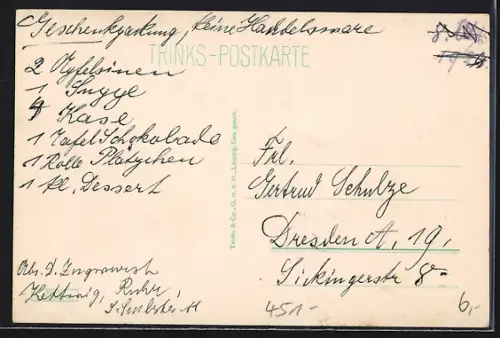 Geschenkpackung, keine Handelsware
TRINKS-POSTKARTE
2 Apfelsinen
1 Suppe
4 Käse
1 Tafel Schokolade
1 Rolle Plätzchen
1 kl. Dessert
Abs. D.
Kettwig, Ruhr,
11
Trinks & Co., G. m. b. H., Leipzig. Ges. gesch.
Frl.
Gertrud Schulze
Dresden A, 19,
Sickingerstr 8-
451-
6,-